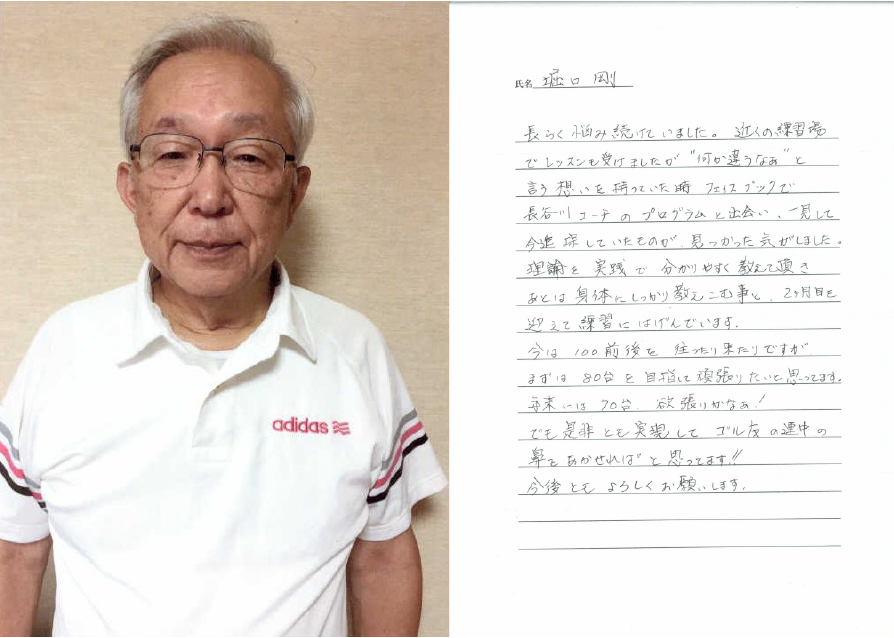 adidas
氏名 堀口 剛
長らく悩み続けていました。近くの練習場
でレッスンも受けましたが"何か違うなぁ"と
言う想いを持っていた時フェイスブックで
長谷川コーチのプログラムと出会い、一見して
今迄探していたものが、見つかった気がしました。
理論を実践で分かりやすく教えて頂き
あとは身体にしっかり教えこむ事と、2ヶ月目を
迎えて練習にはげんでいます。
今は100前後を往ったり来たりですが
まずは80台を目指して頑張りたいと思ってます。
将来には70台、欲張りかなぁ!
でも是非とも実現してゴル友の連中の
鼻をあかせればと思ってます!!
今後ともよろしくお願いします。